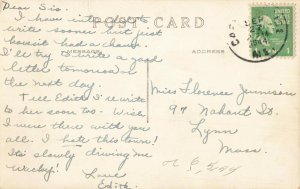 Dear Sis.
POST CARD
I have intended to
write sooner but just
haven't had a chance.
I'll try & write a good
MESSAGE
ADDRESS
letter tomorrow or
the next day.
Tell Edith I'll write
to her soon too. Wish
I were there with you
all. I hate this town!
It's slowly driving me
Love
Miss Florence
97 Nahant St.
Lynn
Mass.
1